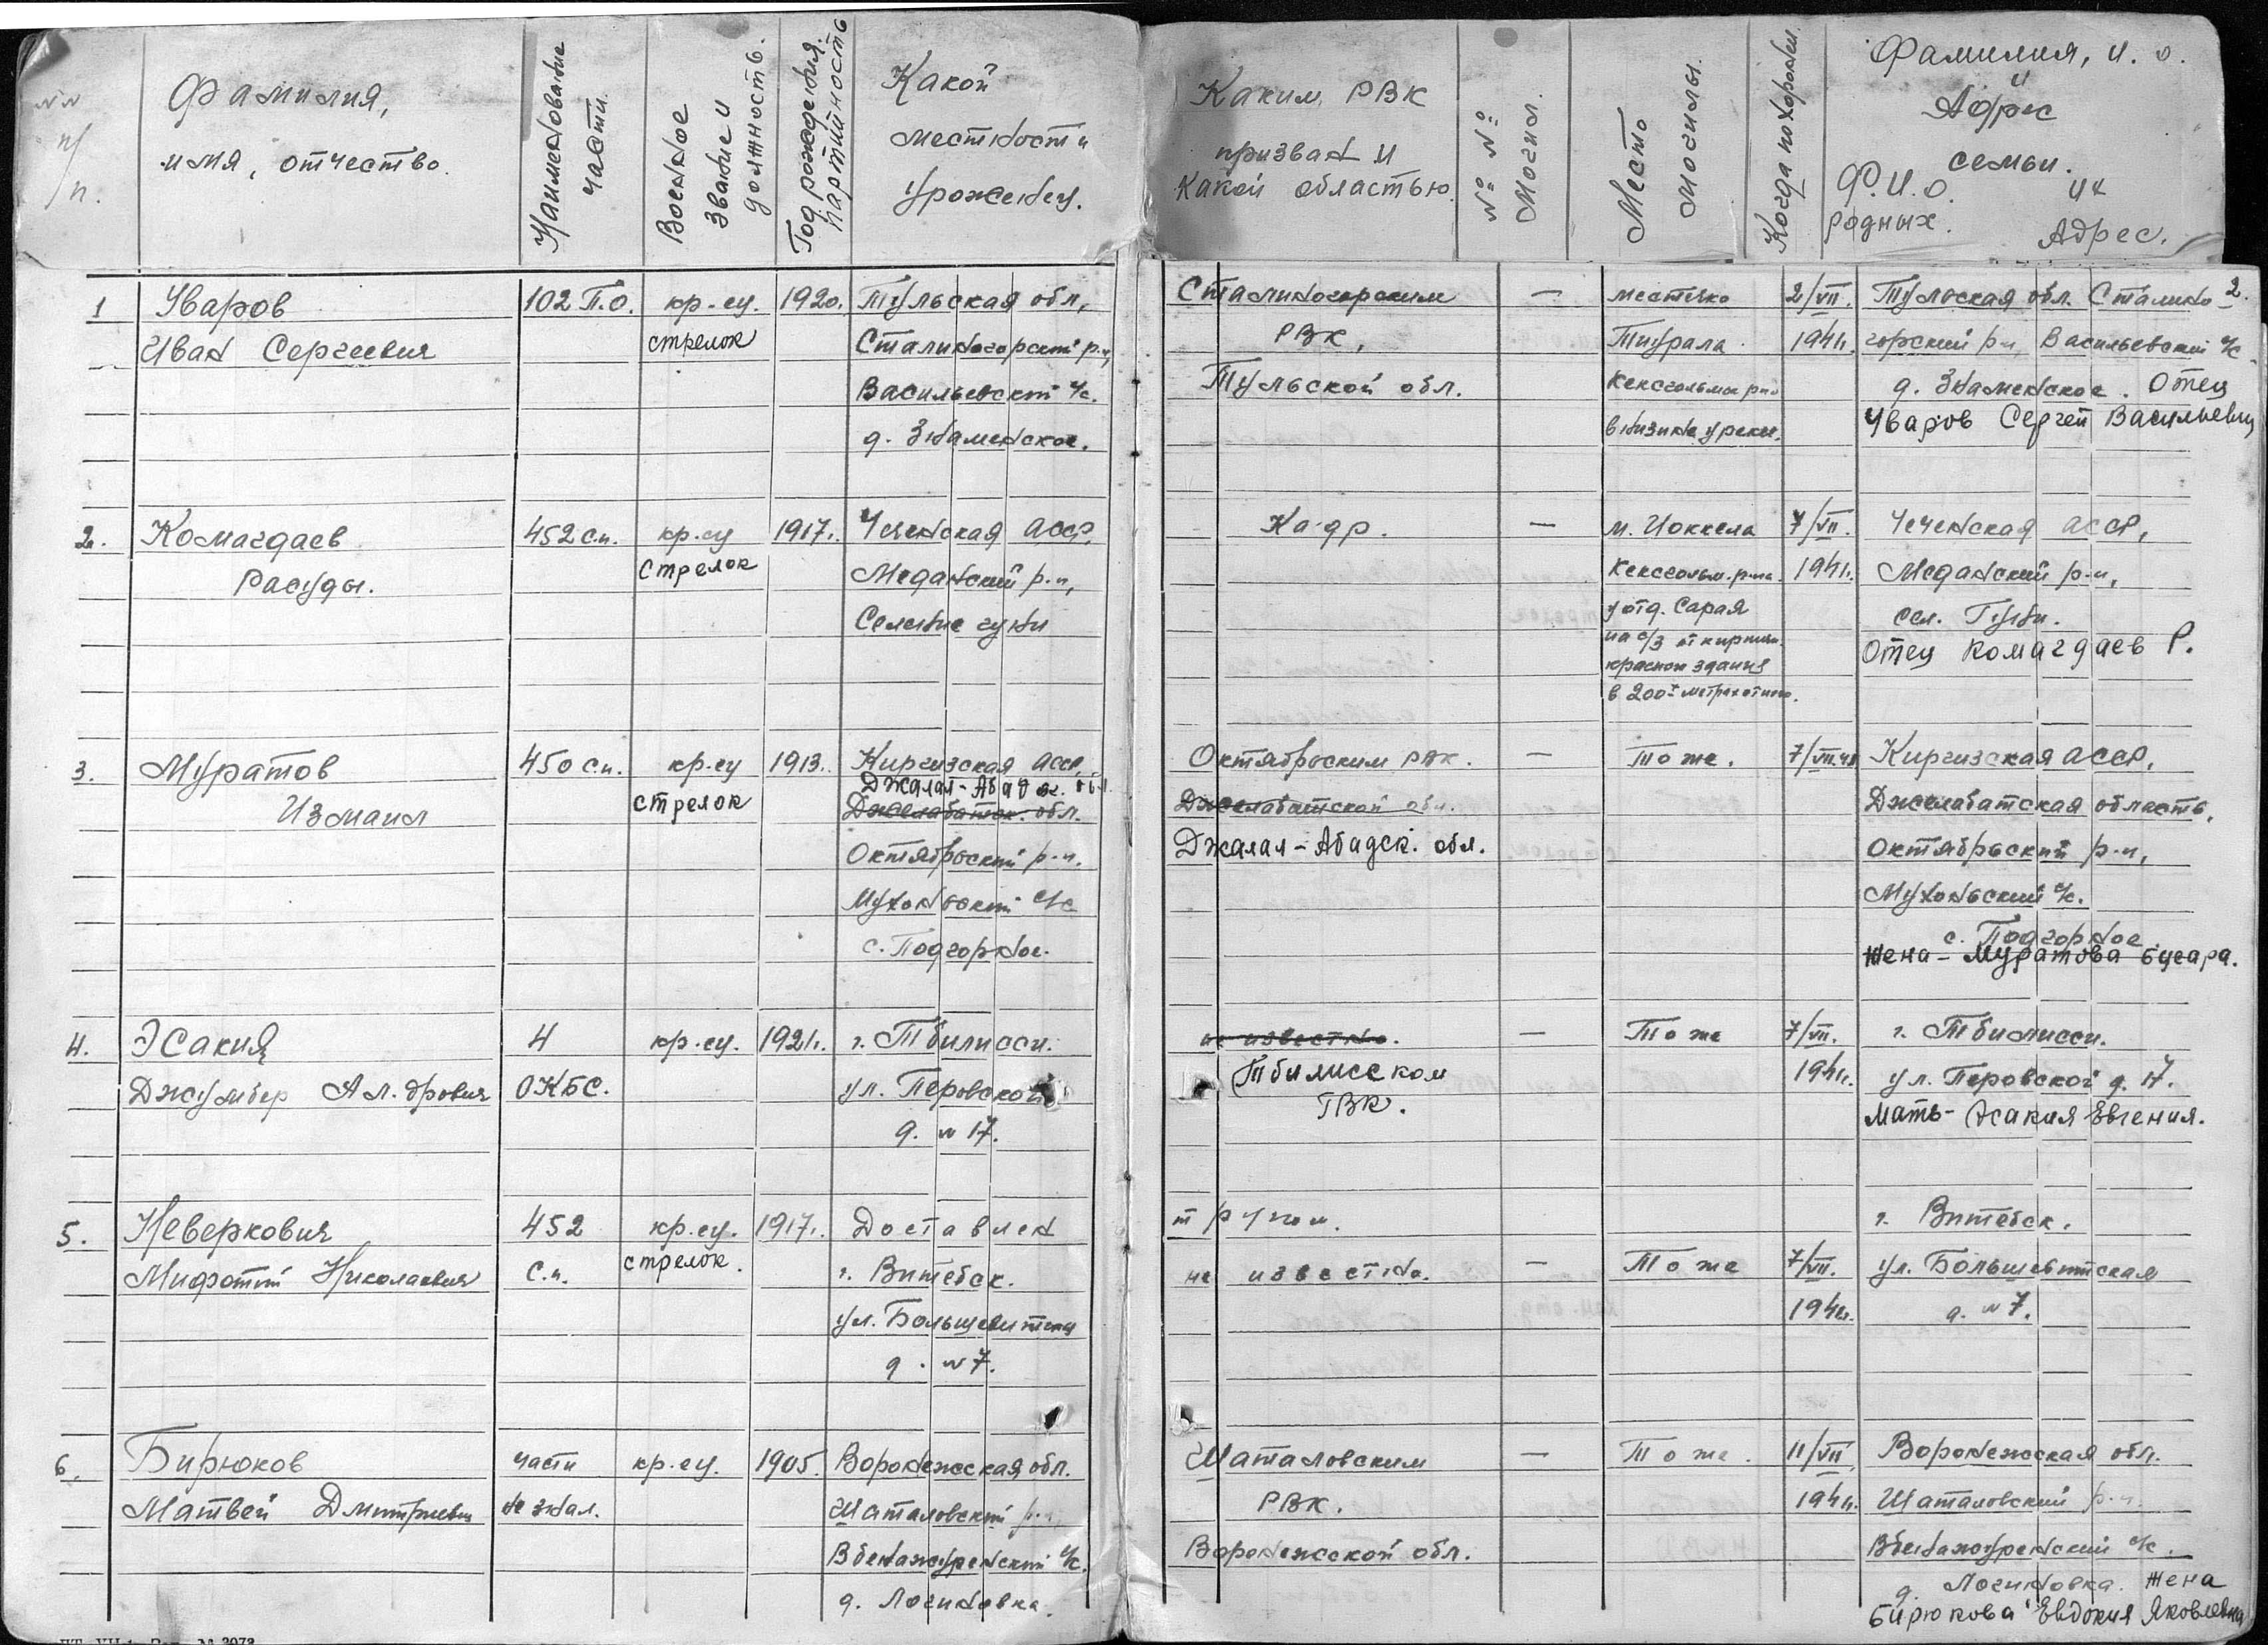 №№ п/п.
Фамилия,
имя, отчество.
Наименование
части.
Военное
звание и
должность.
Год рождения.
партийность
Какой
местности
уроженец.
Каким РВК
призван и
какой областью.
№№
Могил.
Место
Могилы.
Когда похоронен.
Фамилия, и. о.
и
Адрес
семьи.
Ф.И.О.
родных.
Адрес.
2.
1 Уваров 102 П.О. кр-ец. 1920. Тульская обл, Сталиногорским — местечко 2/VII. Тульская обл. Сталино
Иван Сергеевич стрелок Сталиногорский р-н, РВК, Тиурала 1941г. горский р-н, Васильевский с/с
Васильевский с/с. Тульской обл. Кексгольмск р-н д. Знаменское. Отец
д. Знаменское. в низине у реки. Уваров Сергей Васильевич
2. Комагдаев 452 с.п. кр-ец 1917г. Чеченская АССР, Кадр. — м. Иоккела 7/VII. Чеченская АССР,
Расуды. стрелок Меданский р-н, Кексгольм. р-на. 1941г. Меданский р-н,
Селение гуни у отд. Сарая сел. Гуни.
на с/з от кирпичн. Отец Комагдаев Р.
красного здания
в 200х метрах от него.
3. Муратов 450 с.п. кр-ец 1913. Киргизская АССР, Октябрьским РВК. — Тоже. 7/VII.41 Киргизская АССР,
Джалал-Абадск. обл.
Измаил стрелок Джелабатск. обл. Джелабатской обл. Джелабатская область,
Октябрьский р-н. Джалал-Абадск. обл. Октябрьский р-н,
Мухоньский с/с Мухоньский с/с.
с. Подгорное. с. Подгорное
Жена - Муратова Бусара.
4. Эсакия 4 кр-ец. 1921г. г. Тбилисси. не известно. — Тоже 7/VII. г. Тбилисси.
Джумбер Ал.дрович ОКБС. ул. Перовской Тбилисском 1941г. ул. Перовской д. 17.
д. № 17. ГВК. Мать - Эсакия Евгения.
5. Неверкович 452 кр-ец. 1917г. Доставлен трупом. г. Витебск.
Мифотий Николаевич с.п. стрелок. г. Витебск. не известно. — Тоже 7/VII. ул. Большевитская
ул. Большевитская 1941г. д. № 7.
д. № 7.
6. Бирюков части кр-ец. 1905. Воронежская обл. Шаталовским — Тоже. 11/VII Воронежская обл.
Матвей Дмитриевич не знал. Шаталовский р-н, РВК. 1941г. Шаталовский р-н.
с/с. Воронежской обл. с/с.
д. Логиновка. д. Логиновка. Жена
Бирюкова Евдокия Яковлевна